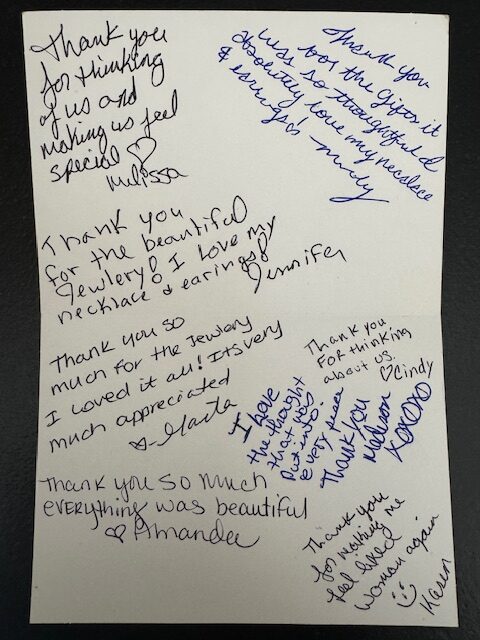 Thank you
for thinking
of us and
making us feel
special ♡
Melissa
Thank you
for the gifts it
was so thoughtful
absolutely love my necklace
& earrings!
Thank you
for the beautiful
Jewlery! I Love my
necklace & earings!
Jennifer
Thank you so
much for the Jewlery
I loved it all! Its very
much appreciated
Thank you
FOR thinking
about us.
♡Cindy
I Love
the thought
that was
put into
every piece
Thank you
Madison
XOXOXO
Thank you so much
everything was beautiful
♡ Amanda
Thank you
for making me
feel like a
Woman again
Karen